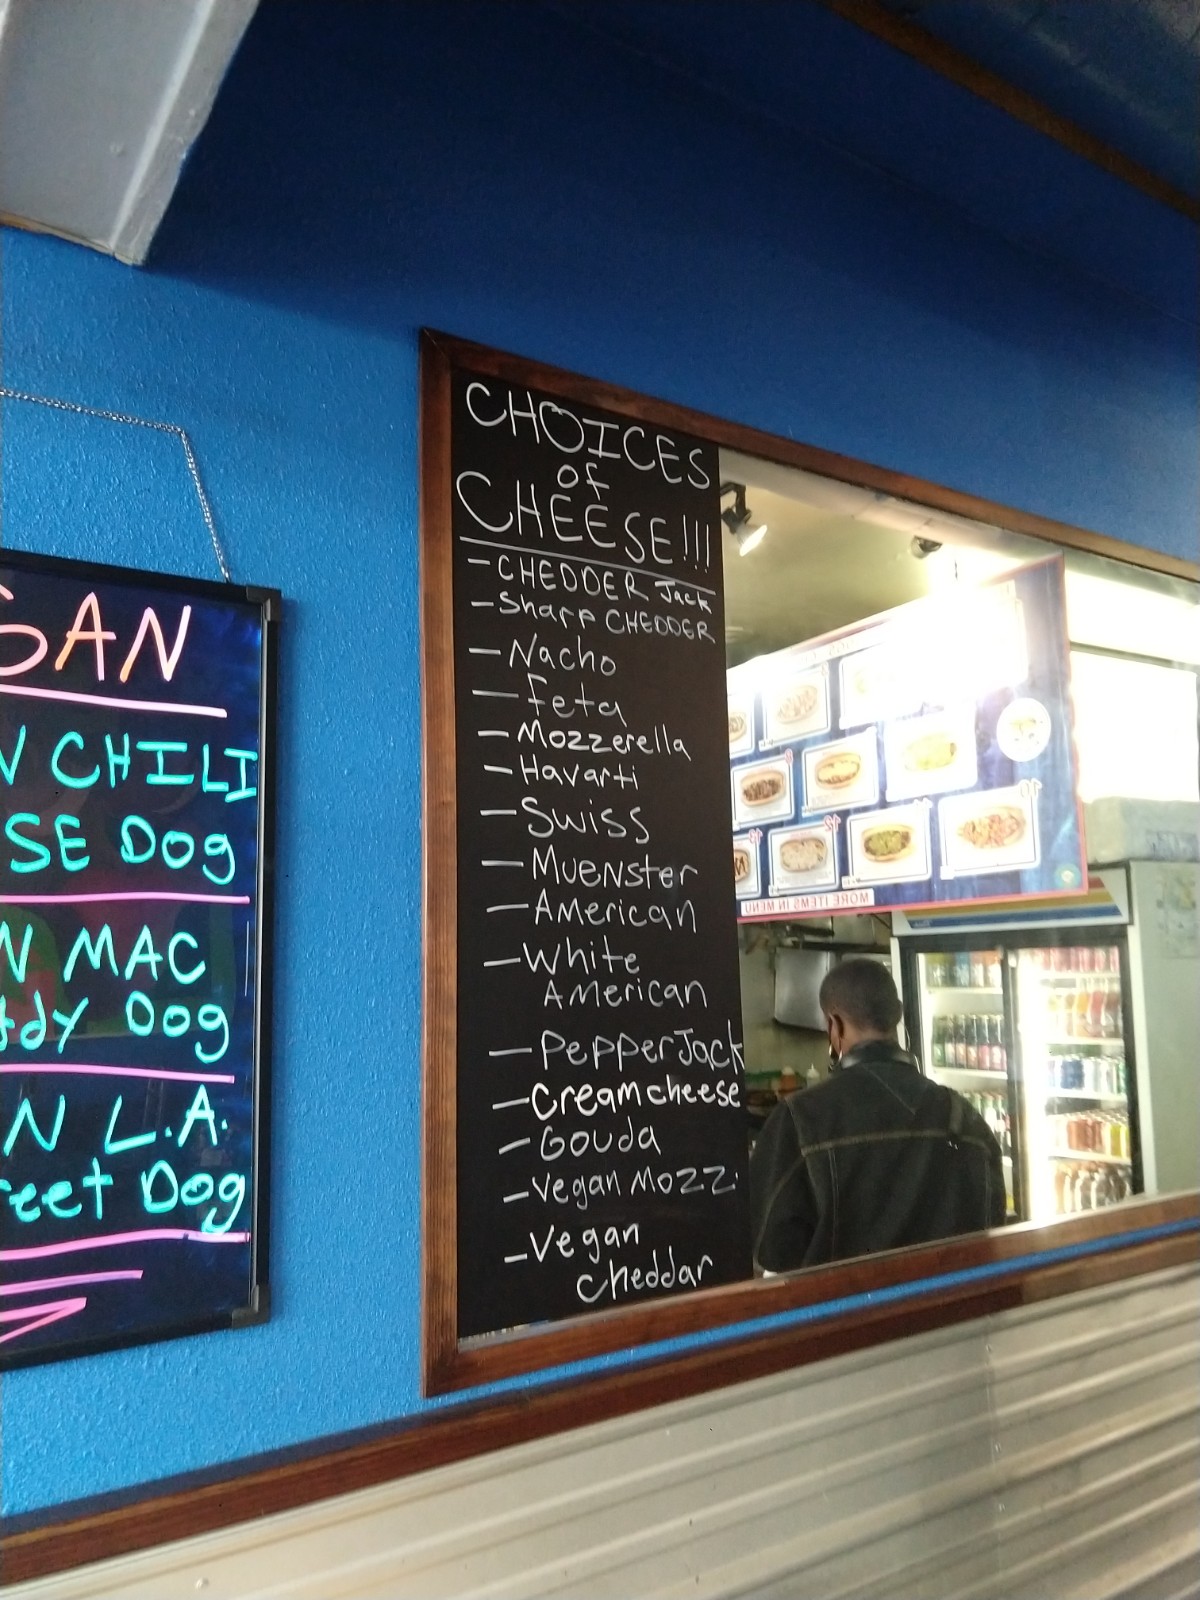 CHOICES
of
CHEESE!!!
- CHEDDER Jack
- Sharp CHEDDER
- Nacho
- feta
- Mozzerella
- Havarti
- Swiss
- Muenster
- American
- White
American
- PepperJack
- Creamcheese
- Gouda
- Vegan Mozz.
- Vegan
Cheddar
GAN
N CHILI
SE Dog
N MAC
ddy Dog
N L.A.
reet Dog
MORE ITEMS IN MENU
10
11
12
13